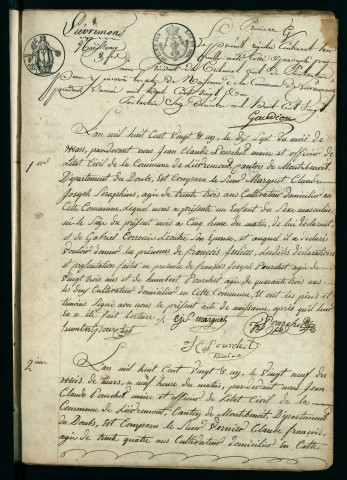 Lièvremont
Naissances
Premier
Le présent registre contenant
feuillets a été coté et paraphé par
nous Président du Tribunal Civil de Pontarlier
pour y inscrire les actes de Naissances de la Commune de Lièvremont
pendant l'année mil huit Cent vingt & un
Pontarlier le Décembre mil huit Cent vingt
1er
L'an mil huit Cent Vingt & un, le dix Sept du mois de
Mars, pardevant nous Jean Claude Pourchet maire et officier de
l'état Civil de la Commune de Lièvremont, canton de Montbenoit,
Département du Doubs, est Comparu le Sieur Marguet Claude
Joseph Seraphin, agé de trente trois ans Cultivateur domicilié en
Cette Commune, lequel nous a présenté un Enfant du Sexe masculin
né le Sept du présent mois à Cinq heures du matin, de lui déclarant
et de Gabriel son Epouse, et auquel il a déclaré
vouloir donner les prénoms de François, lesdites déclarations
et présentation faites en présence de françois Joseph Pourchet agé de
vingt trois ans et de humbert Pourchet agé de quarante trois ans
les deux Cultivateurs domiciliés en Cette Commune, Et ont les père et
témoins Signé avec nous le présent acte de naissance, après qu'il leur
en a été fait lecture.
CJS marguet
humbert pourchet
Pourchet
Maire
2ème
L'an mil huit Cent Vingt & un, le Vingt neuf du
Mois de mars, à neuf heures du matin, pardevant nous Jean
Claude Pourchet maire et officier de l'état Civil de la
Commune de Lièvremont, Canton de Montbenoit, Département
du Doubs, Est Comparu le Sieur Vernier Claude françois,
agé de trente quatre ans Cultivateur domicilié en Cette